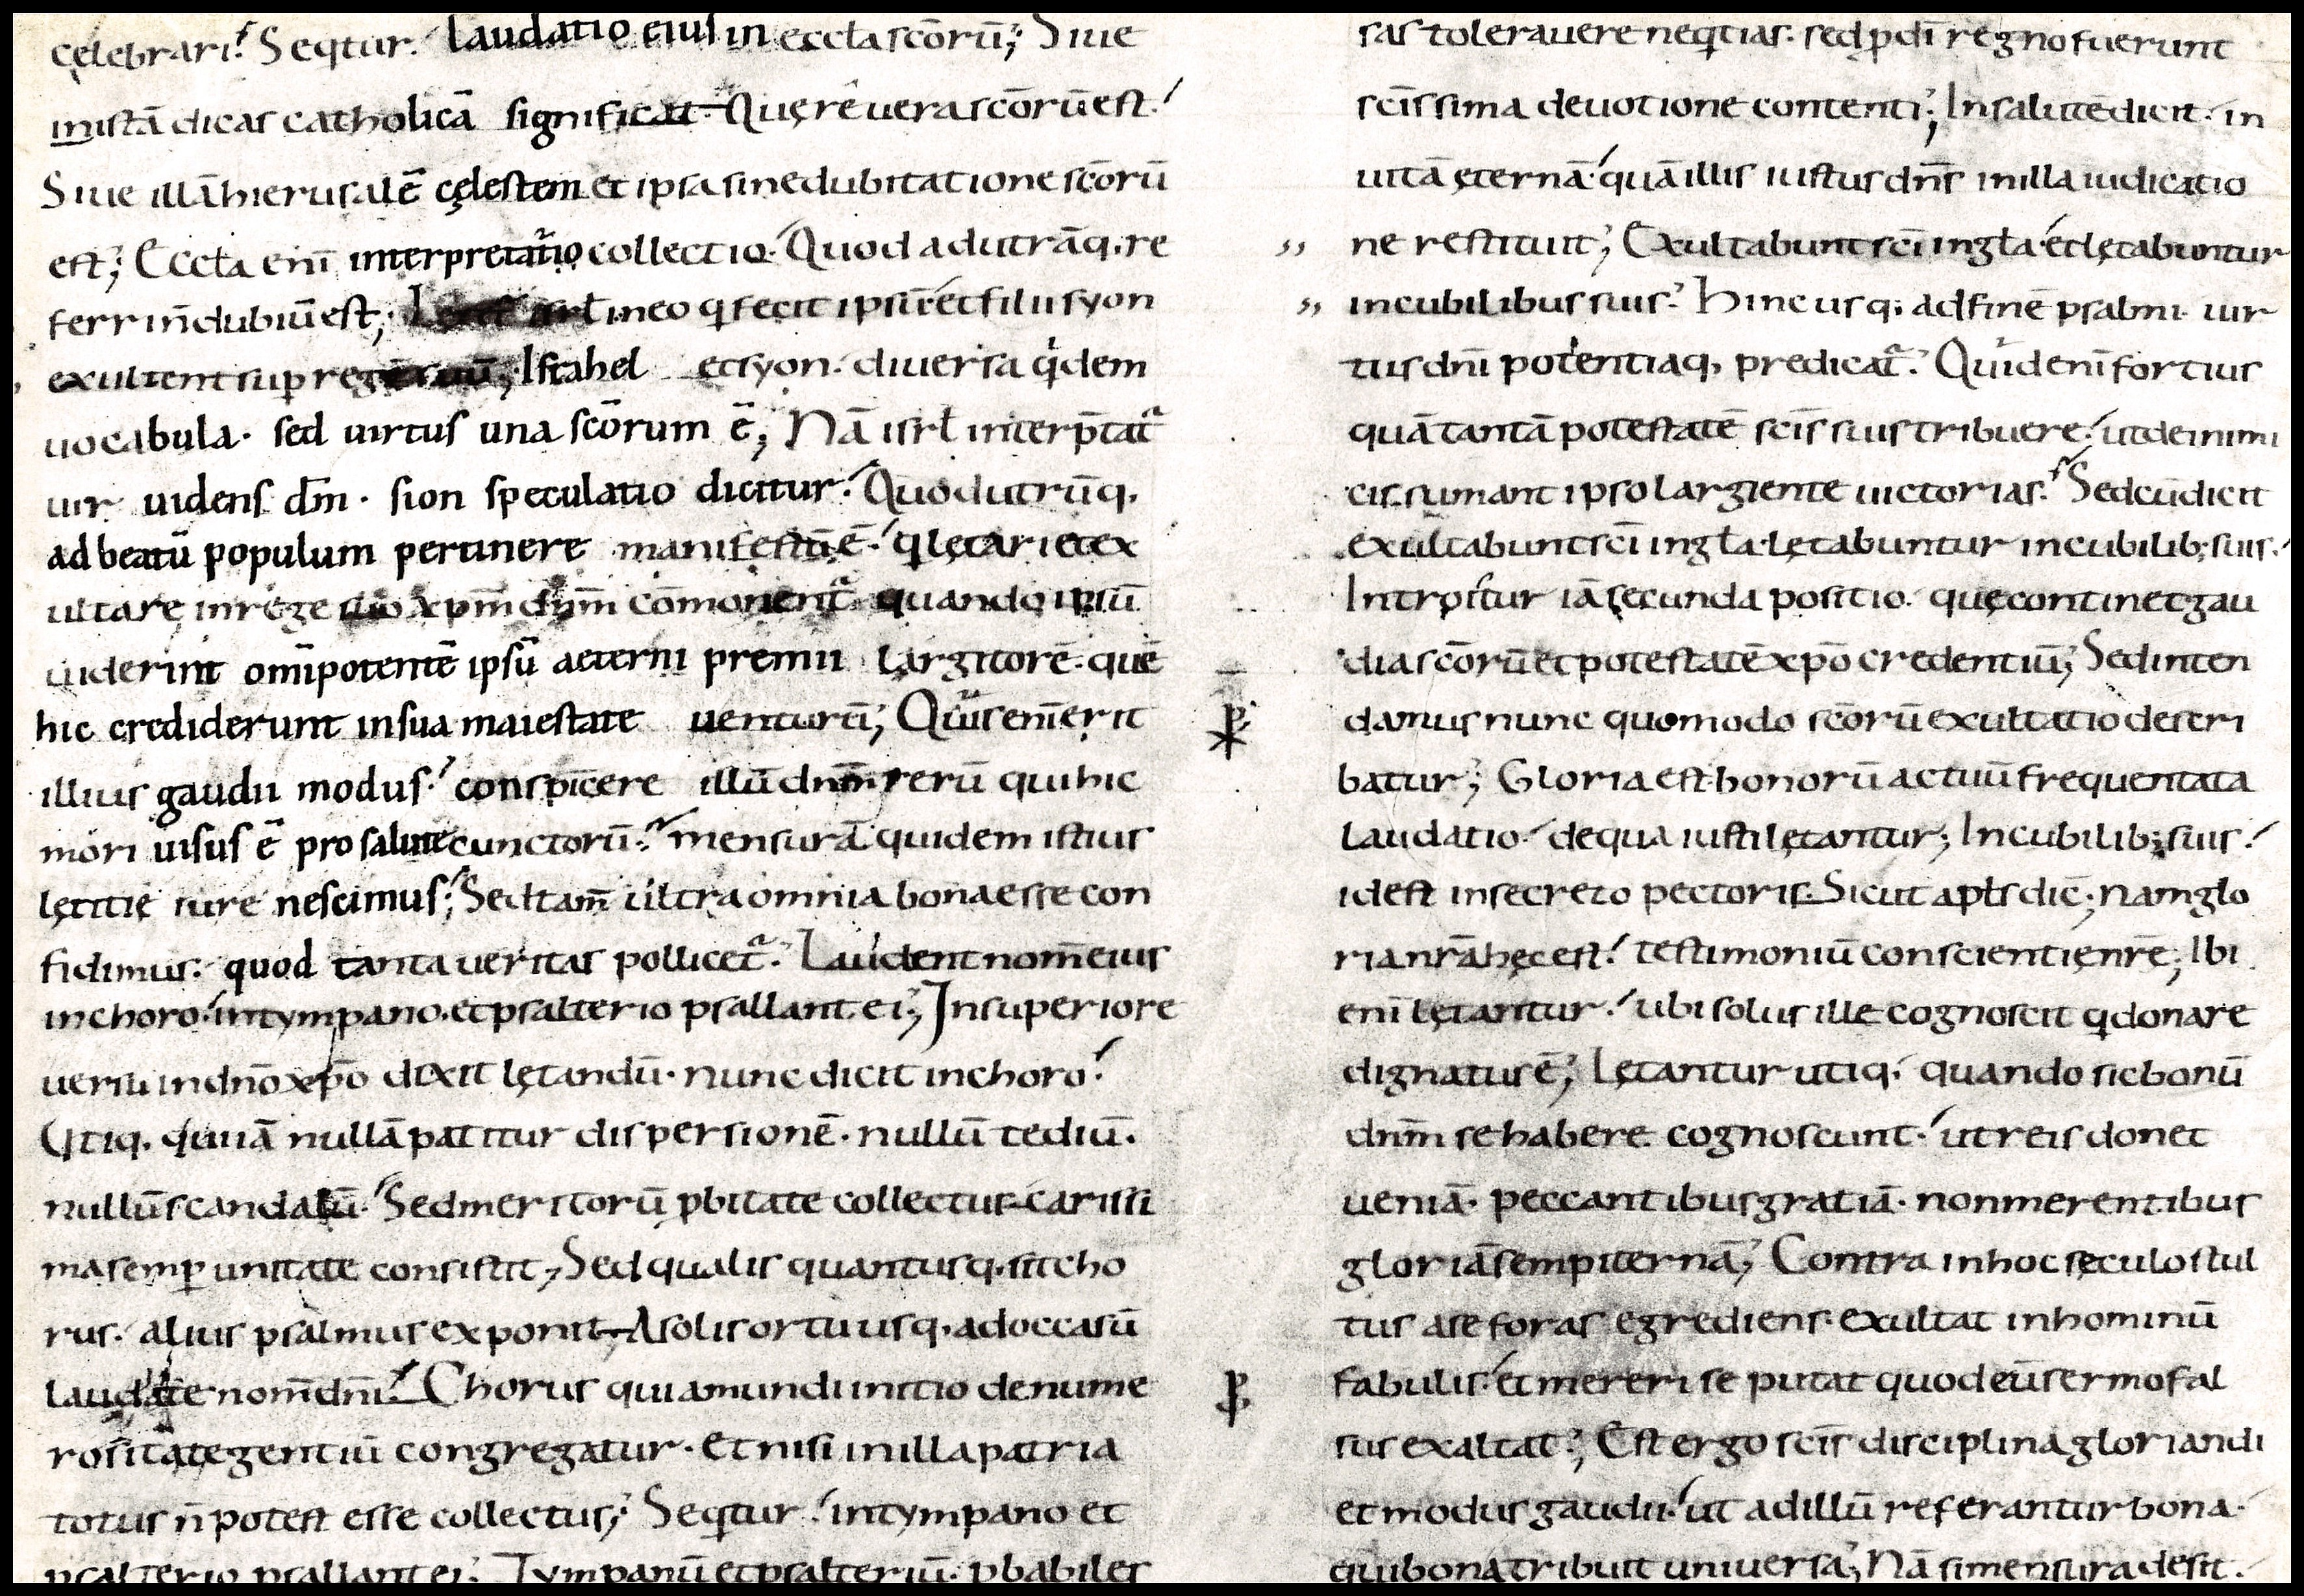 cęlebrari. Seqtur. laudatio eius in eccła scōrū; Siue
in istā dicas catholicā significat. Quę reuera scōrū est.
Siue illā hierusalē cęlestem et ipsa sine dubitatione scōrū
est; Eccła enī interpretatio collectio. Quod ad utrāq. re
ferri n̄ dubiū est; in eo q fecit ipsū et filii syon
exultent sup rege suū; Israhel et syon. diuersa qdem
uocabula. sed uirtus una scōrum ē; Nā isrł interp̄tat
uir uidens dm̄. sion speculatio dicitur. Quod utrūq.
ad beatū populum pertinere manifestū ē. q lętari et ex
ultare in rege suo xpm̄ dnm̄ cōmonent. quando ipsū
uiderint omīpotentē ipsū aeterni premii largitorē. quē
hic crediderunt in sua maiestate uenturū; Quis enī erit
illius gaudii modus. conspicere illū dnm̄ rerū qui hic
mori uisus ē pro salute cunctorū. mensurā quidem istius
lętitię iure nescimus; Sed tam̄ ultra omnia bona esse con
fidimus. quod tanta ueritas pollicet. Laudent nom̄ eius
in choro. in tympano. et psalterio psallant ei; In superiore
uersu in dnō xpō dixit lętandū. nunc dicit in choro.
Utiq. qui iā nullā patitur dispersionē. nullū tediū.
nullū scandalū. Sed meritorū pbitate collectus carissi
ma semp unitate consistit; Sed qualis quantusq. sit cho
rus. alius psalmus exponit. A solis ortu usq. ad occasū
laudate nom̄ dnī. Chorus qui a mundi initio de nume
rositate gentiū congregatur. et nisi in illa patria
totus n̄ potest esse collectus; Seqtur. in tympano et
psalterio psallant ei; Tympanū et psalteriū. pbabiles
sas tolerauere neqtias. sed p dī regno fuerunt
scīssima deuotione contenti; In salutē dicit. in
uitā ęternā. quā illis iustus dn̄s in illa iudicatio
ne restituit; Exultabunt scī in głа et lętabuntur
in cubilibus suis. Hinc usq. ad finē psalmi. uir
tus dnī potentiaq, predicat. Quid enī fortius
quā tantā potestatē scīs suis tribuere. ut de inimi
cis sumant ipso largiente uictorias. Sed cū dicit
exultabunt scī in głа. lętabuntur in cubilib; suis.
Introitur iā secunda positio. quę continet gau
dia scōrū et potestatē xpō credentiū; Sed inten
damus nunc quomodo scōrū exultatio descri
batur; Gloria est honorū actuū frequentata
laudatio. de qua iusti lętantur; In cubilib; suis.
id est in secreto pectoris. Sicut apłs dic̄; nam glo
ria nr̄a hęc est. testimoniū conscientię nr̄ę; Ibi
enī lętantur. ubi solus ille cognoscit q donare
dignatur ē; Lętantur utiq. quando sic bonū
dnm̄ se habere cognoscunt. ut reis donet
ueniā. peccantibus gratiā. non merentibus
gloriā sempiternā; Contra in hoc sęculo stul
tus a se foras egrediens. exultat in hominū
fabulis. et mereri se putat quod eū sermo fal
sus exaltat; Est ergo scīs disciplina gloriandi
et modus gaudii. ut ad illū referantur bona.
qui bona tribuit uniuersa; Nā si mensura desit.